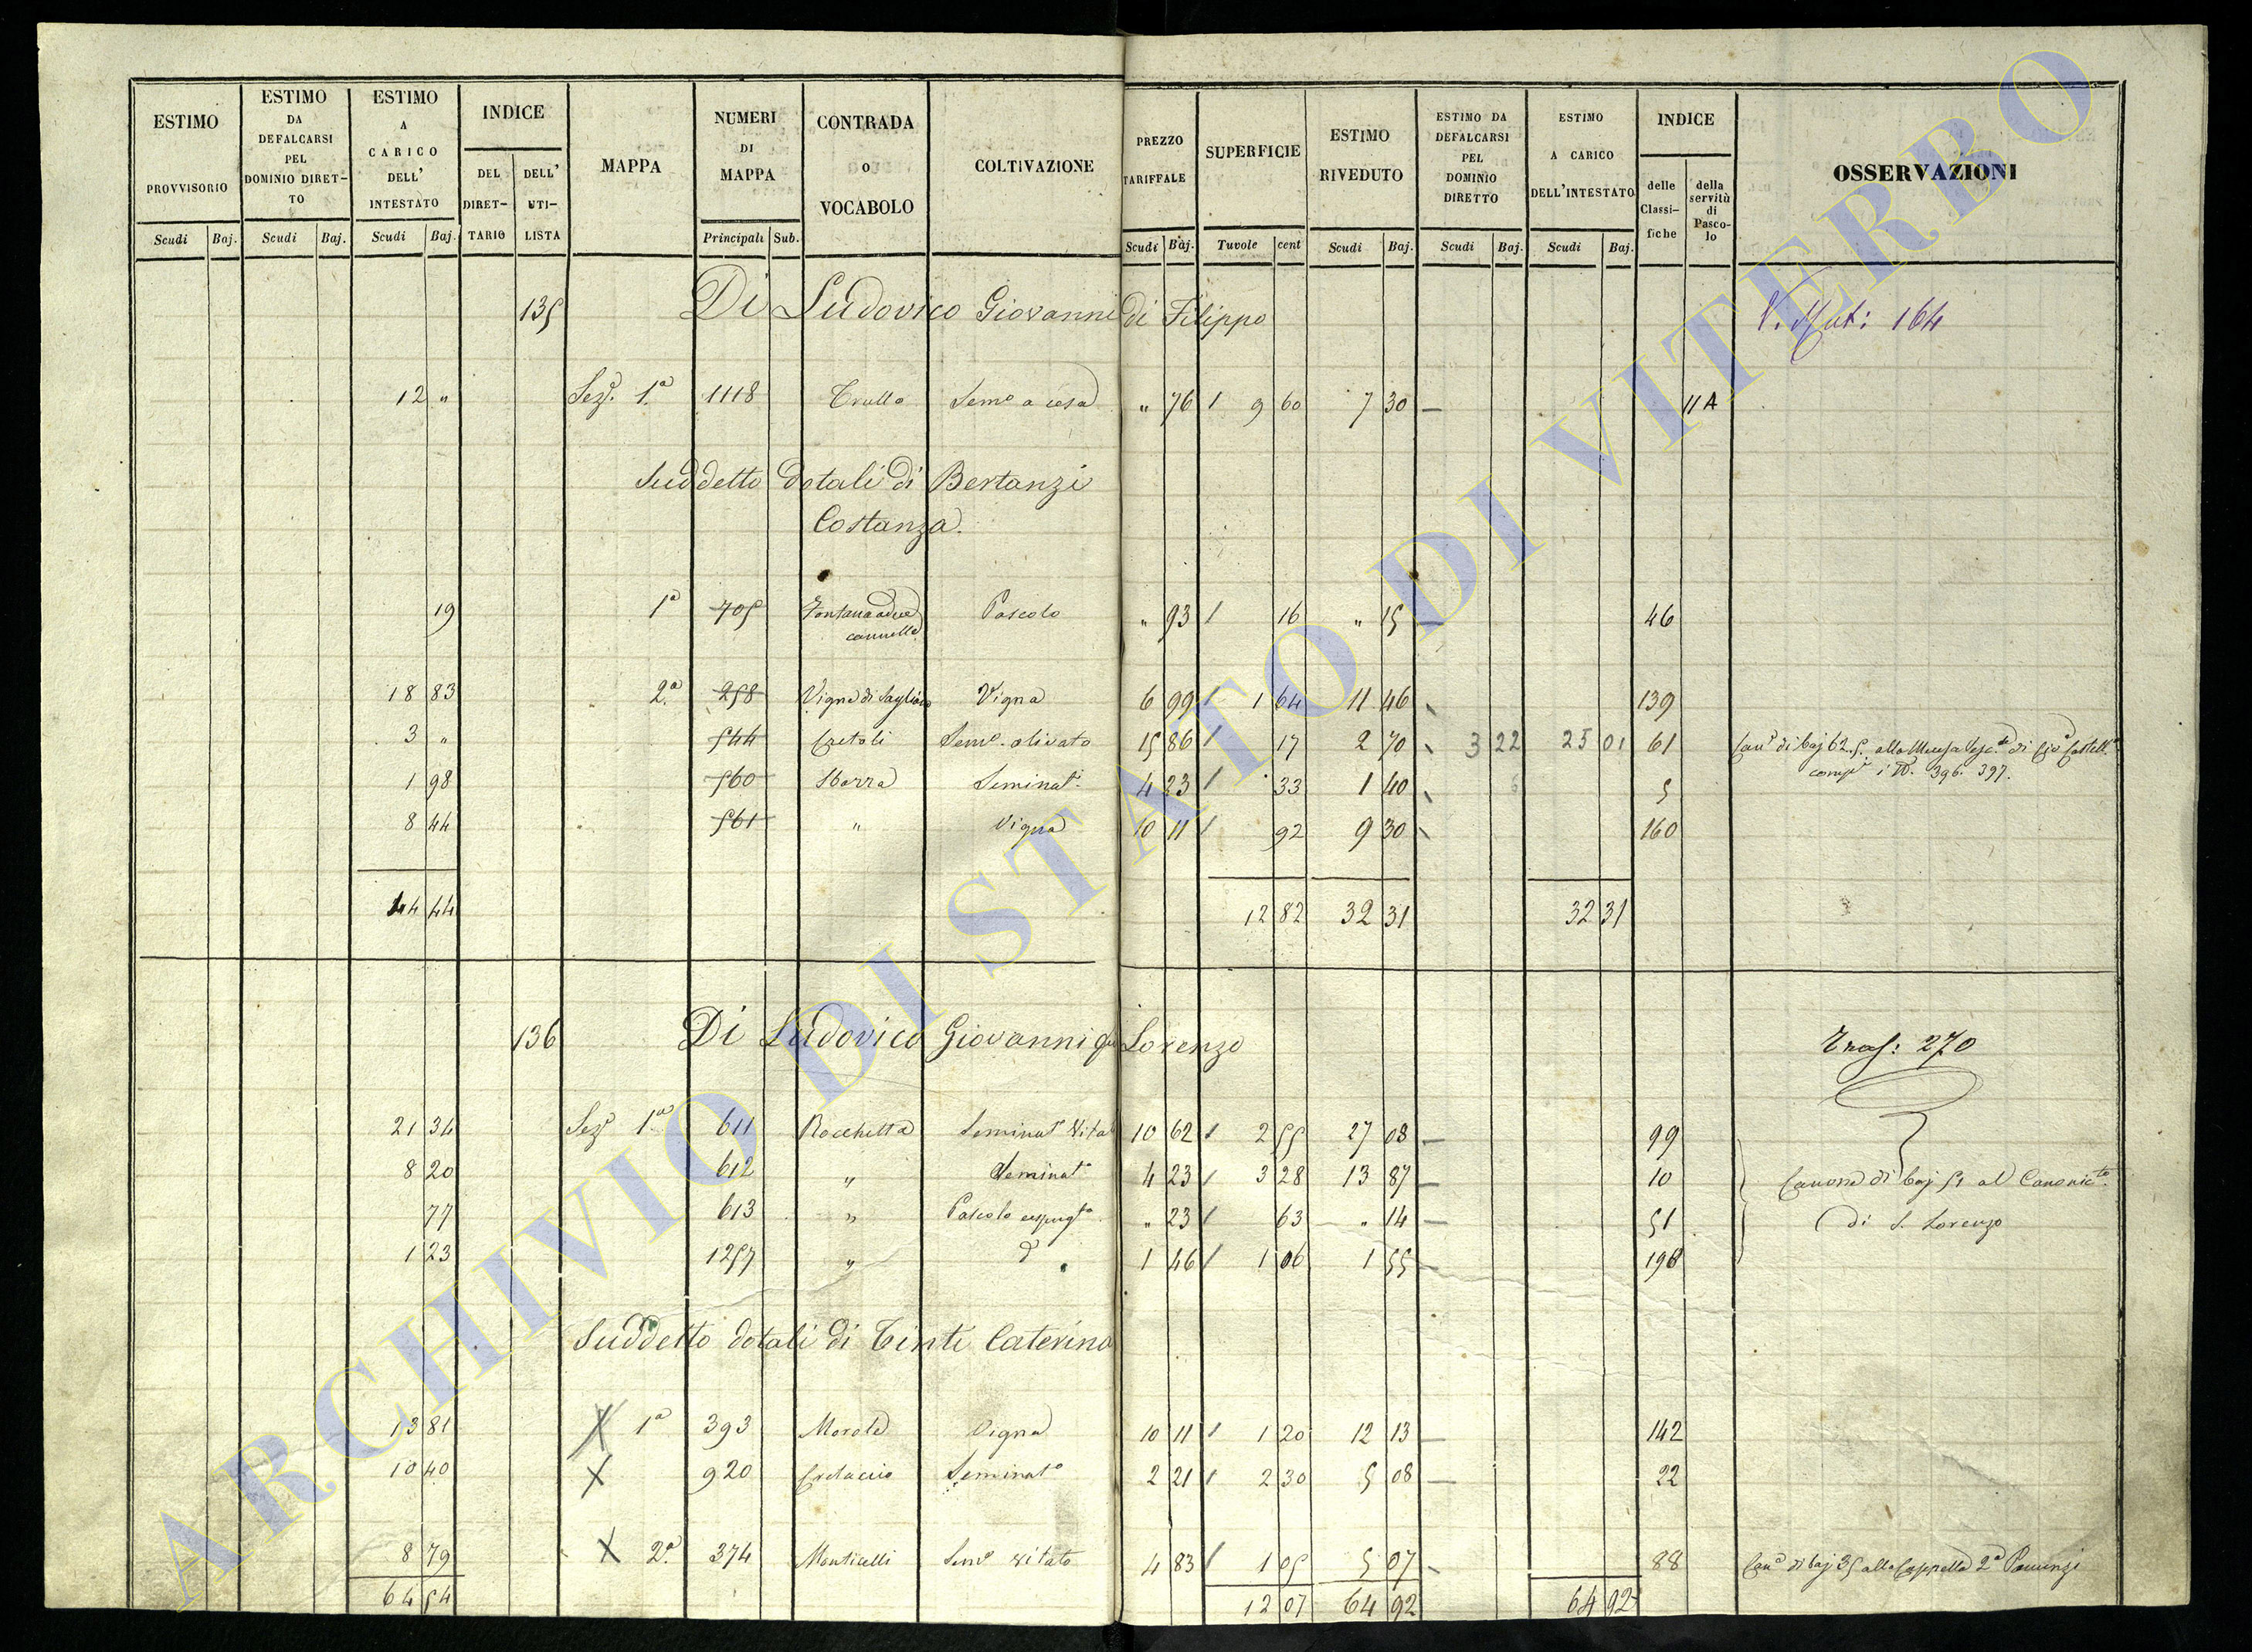 ESTIMO PROVVISORIO
ESTIMO DA DEFALCARSI PEL DOMINIO DIRET-TO
ESTIMO A CARICO DELL' INTESTATO
INDICE
DEL DIRET-TARIO
DELL' UTI-LISTA
MAPPA
NUMERI DI MAPPA
CONTRADA o VOCABOLO
COLTIVAZIONE
PREZZO TARIFFALE
SUPERFICIE
ESTIMO RIVEDUTO
ESTIMO DA DEFALCARSI PEL DOMINIO DIRETTO
ESTIMO A CARICO DELL'INTESTATO
INDICE
delle Classi-fiche
della servitù di Pasco-lo
OSSERVAZIONI
Scudi Baj. Scudi Baj. Scudi Baj. Principali Sub. Scudi Baj. Tavole cent Scudi Baj. Scudi Baj. Scudi Baj.
135 Di Ludovico Giovanni di Filippo V. Mut: 164
12 " Sez. 1a 1118 Trullo Semo a " 76 9 60 7 30 11 A
Suddetto dotali di Bertanzi
Costanza.
19 1a 705 Fontana a due Pascolo " 93 16 " 15 46
cannelle
18 83 2a 258 Vigna di Vigna 6 99 1 64 11 46 139
3 " 544 Cretoli Semo. olivato 15 86 17 2 70 3 22 25 01 61 di baj 62.5. alla Mensa di
396. 397.
1 98 560 Sbarra Seminato 4 23 33 1 40 6 5
8 44 561 " Vigna 10 11 92 9 30 160
44 44 12 82 32 31 32 31
136 Di Ludovico Giovanni qu Lorenzo Tras: 270
21 34 Sez 1a 611 Rocchetta Seminato Vitato 10 62 2 55 27 08 99
8 20 612 " Seminato 4 23 3 28 13 87 10 Canone di baj 51 al Canonicto.
77 613 " Pascolo " 23 63 " 14 51 di S. Lorenzo
1 23 1257 " 1 46 1 06 1 55 198
Suddetto dotali di Tinti Caterina
13 81 X 1a 393 Vigna 10 11 1 20 12 13 142
10 40 X 920 Cretaccio Seminato 2 21 2 30 5 08 22
8 79 X 2a 374 Monticelli Semo vitato 4 83 1 05 5 07 88 di baj 35 alla Cappella 2a
64 54 12 07 64 92 64 92
ARCHIVIO DI STATO DI VITERBO